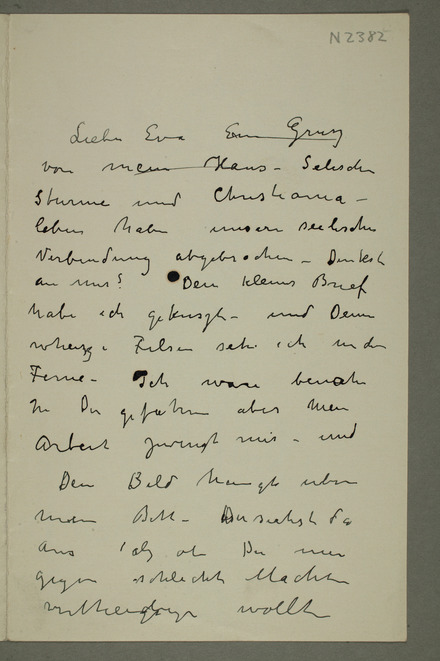 N2382
Liebe Eva Ein Gruss
von mein Haus – Seelische
Stürme und Christiania –
leben haben unsern seelischen
Verbindung abgebrochen – Denkst
an mir? Dein kleines Brief
habe ich – und Deine
Felsen sehe ich in der
Ferne – Ich ware beinahe
zu Du gefahren aber mein
Arbeit zwingt mir – und
Dein Bild hangt uber
mein Bett – Du siehst da
aus als ob Du mir
gegen schlechte Machten
wollte